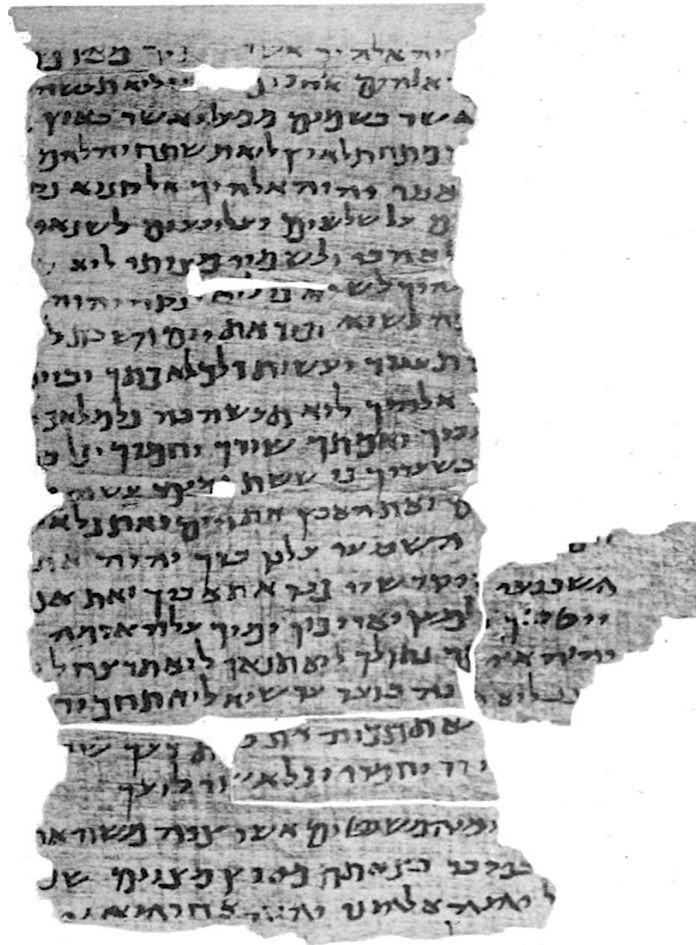 יהוה אלהיך אשר תיך מארץ
אלהים אחרים ני לוא תעשה
אשר בשמים ממעל ואשר בארץ
מתחת לארץ לוא תשתחוה להם
אנכי יהוה אלהיך אל קנוא
ם על שלשים ועל רבעים לשנאי
לאהבי ולשמרי מצותי לוא
להיך לשוא כי לוא ינקה יהוה
מה לשוא זכור את יום השבת ל
תעבוד ועשית כל מלאכתך וביום
אלהיך לוא תעשה בה כל מלאכה
עבדך ואמתך שורך וחמרך וכל ב
בשעריך כי ששת ימים עשה
ם ואת הארץ את הים ואת כל א
השביעי על כן ברך יהוה את
השביעי ויקדשיו כבד את אביך ואת אמ
ייטב לך ולמען יאריכון ימיך על האדמה
יהוה אלהיך נתן לך לוא תנאף לוא תרצח לו
לוא ענה ברעך עד שוא לוא תחמוד
את בית רעך שד
ורו וחמרו וכל אשר לרעך
ים והמשפטים אשר צוה משה את
במדבר בצאתם מארץ מצרים שמ
ל יהוה אלהינו יהוה אחד הוא